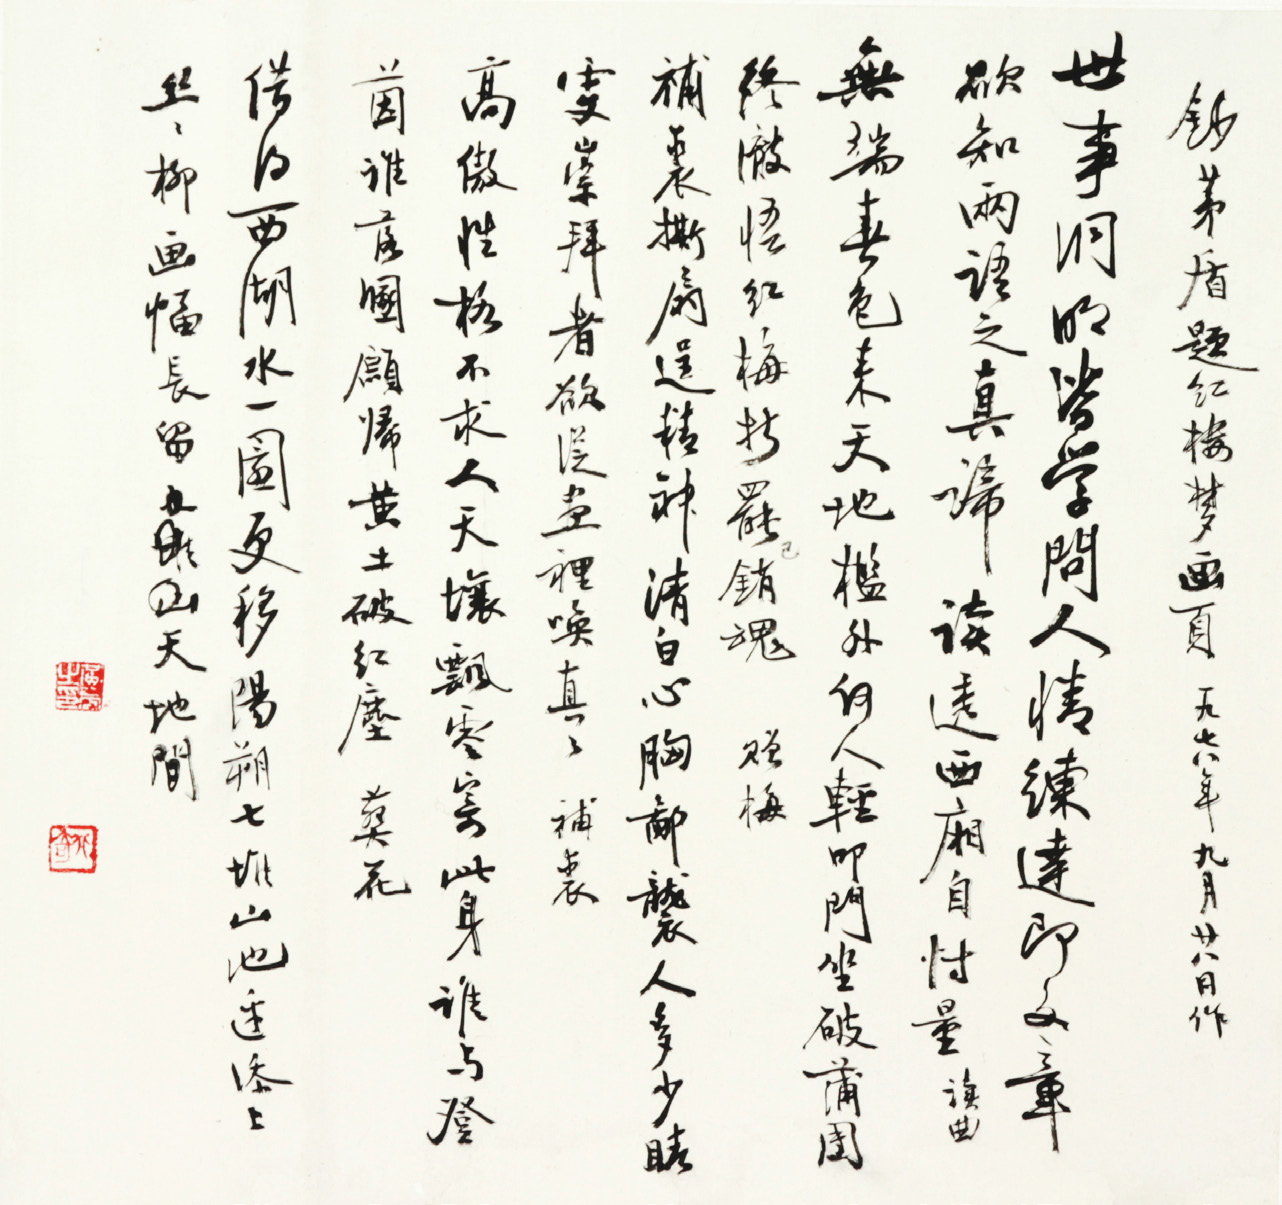 鈔茅盾題红楼梦画頁 一九七八年九月廿八日作
世事洞明皆学問人情練達即文章
欲知兩語之真諦读透西廂自忖量 读曲
無端春色来天地檻外何人輕叩門坐破蒲團
終澈悟红梅折罷已銷魂 贈梅
補裘撕扇逞精神清白心胸鄙襲人多少晴
雯崇拜者欲從画裡唤真々 補裘
高傲性格不求人天壤飄零寄此身誰与登
茵誰落圂願歸黄土破红塵 葬花
借得西湖水一圜更移陽朔七堆山池邊添上
丝々柳画幅長留天地間